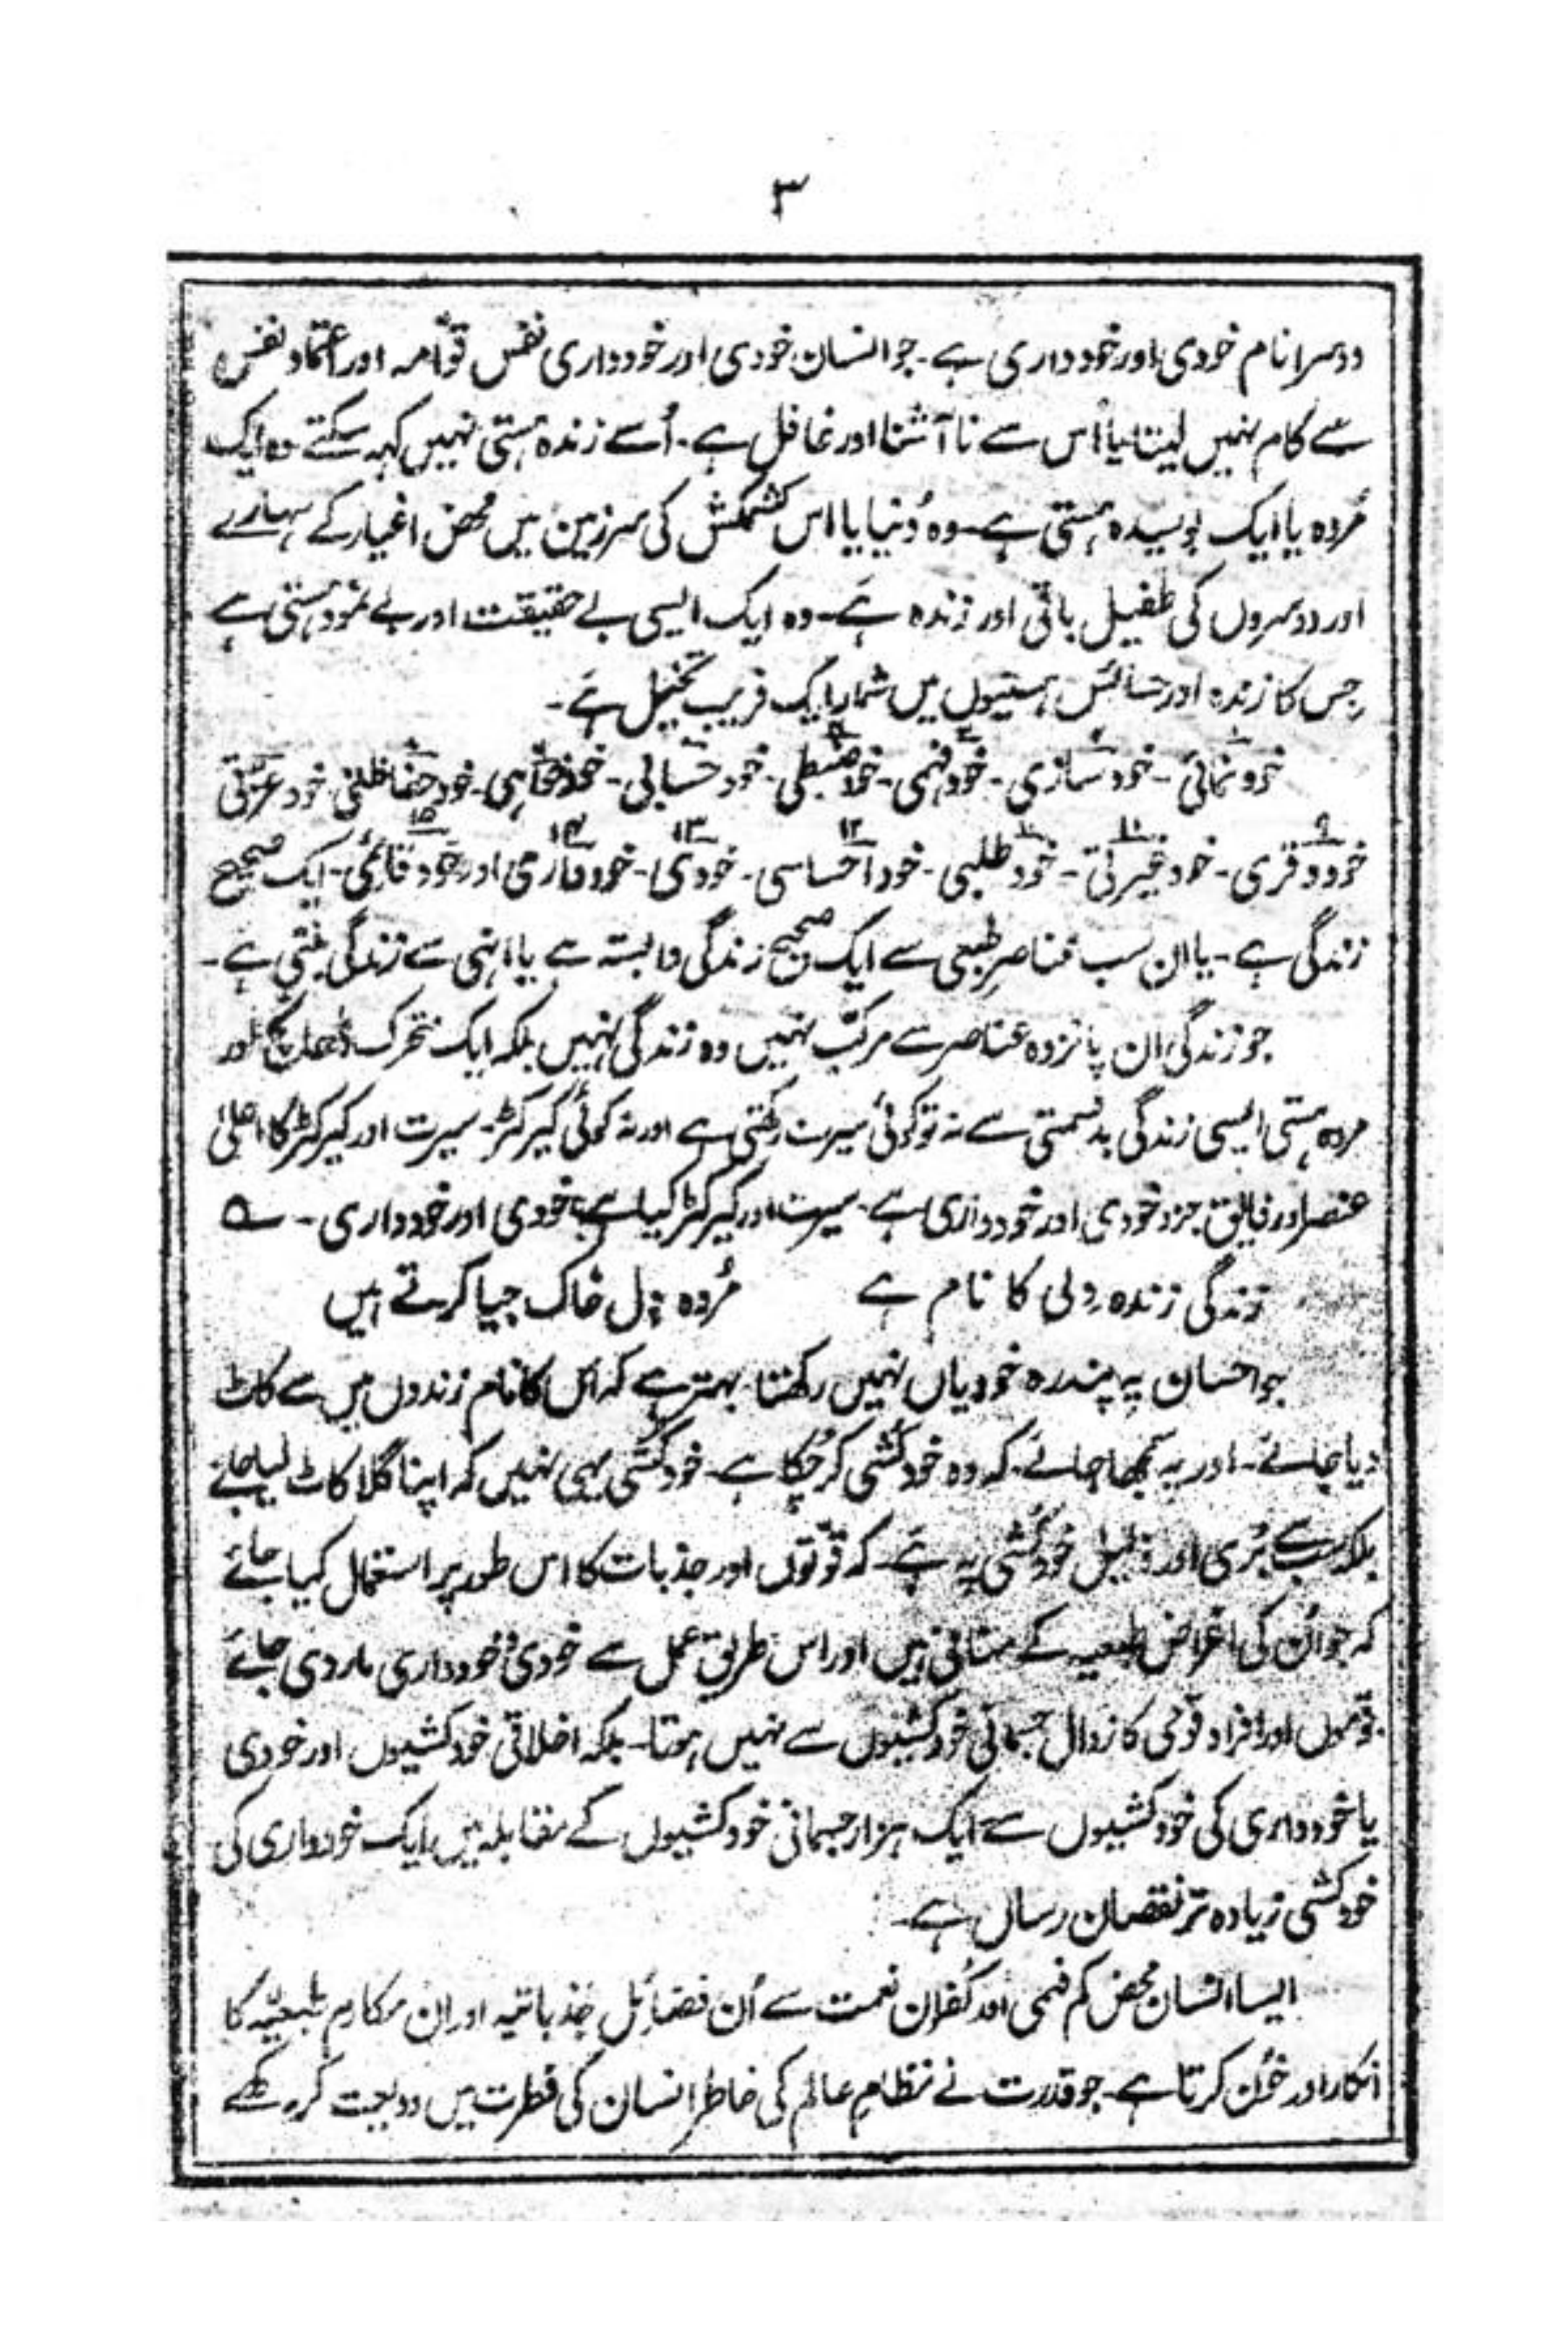 ۳
دوسرا نام خودی اور خودداری ہے۔ جو انسان خودی اور خودداری نفس قوّامہ اور اعتماد نفس
سے کام نہیں لیتا یا اُس سے نا آشنا اور غافل ہے۔ اُسے زندہ ہستی نہیں کہہ سکتے وہ ایک
مُردہ یا ایک بوسیدہ ہستی ہے۔ وہ دُنیا یا اس کشمکش کی سرزمین میں محض اغیار کے سہارے
اور دوسروں کی طفیل باقی اور زندہ ہے۔ وہ ایک ایسی بے حقیقت اور بے نمود ہستی ہے
جس کا زندہ اور حسائس ہستیوں میں شمار ایک فریب تخیل ہے۔
خود نمائی۔ خود سازی۔ خود فہمی۔ خود ضبطی۔ خود حسابی۔ خود خواہی۔ خود حفاظتی۔ خود عزتی
۹ ۱۰ ۱۱ ۱۲ ۱۳ ۱۴ ۱۵
خود وقری۔ خود غیرتی۔ خود طلبی۔ خود احساسی۔ خودی۔ خودداری اور خود قائمی۔ ایک صحیح
زندگی ہے۔ یا ان سب عناصرِ طبعی سے ایک صحیح زندگی وابستہ ہے یا انہی سے زندگی بنتی ہے۔
جو زندگی ان پانزدہ عناصر سے مرکّب نہیں وہ زندگی نہیں بلکہ ایک متحرک ڈھانچ اور
مردہ ہستی ایسی زندگی بدقسمتی سے نہ تو کوئی سیرت رکھتی ہے اور نہ کوئی کیرکٹر۔ سیرت اور کیرکٹر کا اعلیٰ
عنصر اور فایق جزو خودی اور خودداری ہے۔ سیرت اور کیرکٹر کیا ہے؟ خودی اور خودداری۔ ؎
زندگی زندہ دلی کا نام ہے مُردہ دل خاک جیا کرتے ہیں
جو احسان یہ پندرہ خودیاں نہیں رکھتا۔ بہتر ہے کہ اُس کا نام زندوں میں سے کاٹ
دیا جائے۔ اور یہ سمجھا جائے۔ کہ وہ خودکُشی کر چُکا ہے۔ خودکُشی یہی نہیں کہ اپنا گلا کاٹ لیا جائے
بلکہ سب سے بُری اور ذلیل خودکُشی یہ ہے۔ کہ قوّتوں اور جذبات کا اس طور پر استعمال کیا جائے
کہ جو اُن کی اغراض طبعیہ کے منافی ہیں اور اس طریق عمل سے خودی و خودداری مار دی جائے
قوموں اور افراد قومی کا زوال جسمانی خودکشیوں سے نہیں ہوتا۔ بلکہ اخلاقی خودکشیوں اور خودی
یا خودداری کی خودکشیوں سے ایک ہزار جسمانی خودکشیوں کے مقابلہ میں ایک خودداری کی
خودکشی زیادہ تر نقصان رساں ہے۔
ایسا انسان محض کم فہمی اور کُفران نعمت سے اُن فضائل جذباتیہ اور اِن مکارم طبعیّہ کا
انکار اور خُون کرتا ہے۔ جو قدرت نے نظامِ عالم کی خاطر انسان کی فطرت میں ودیعت کر رکھے